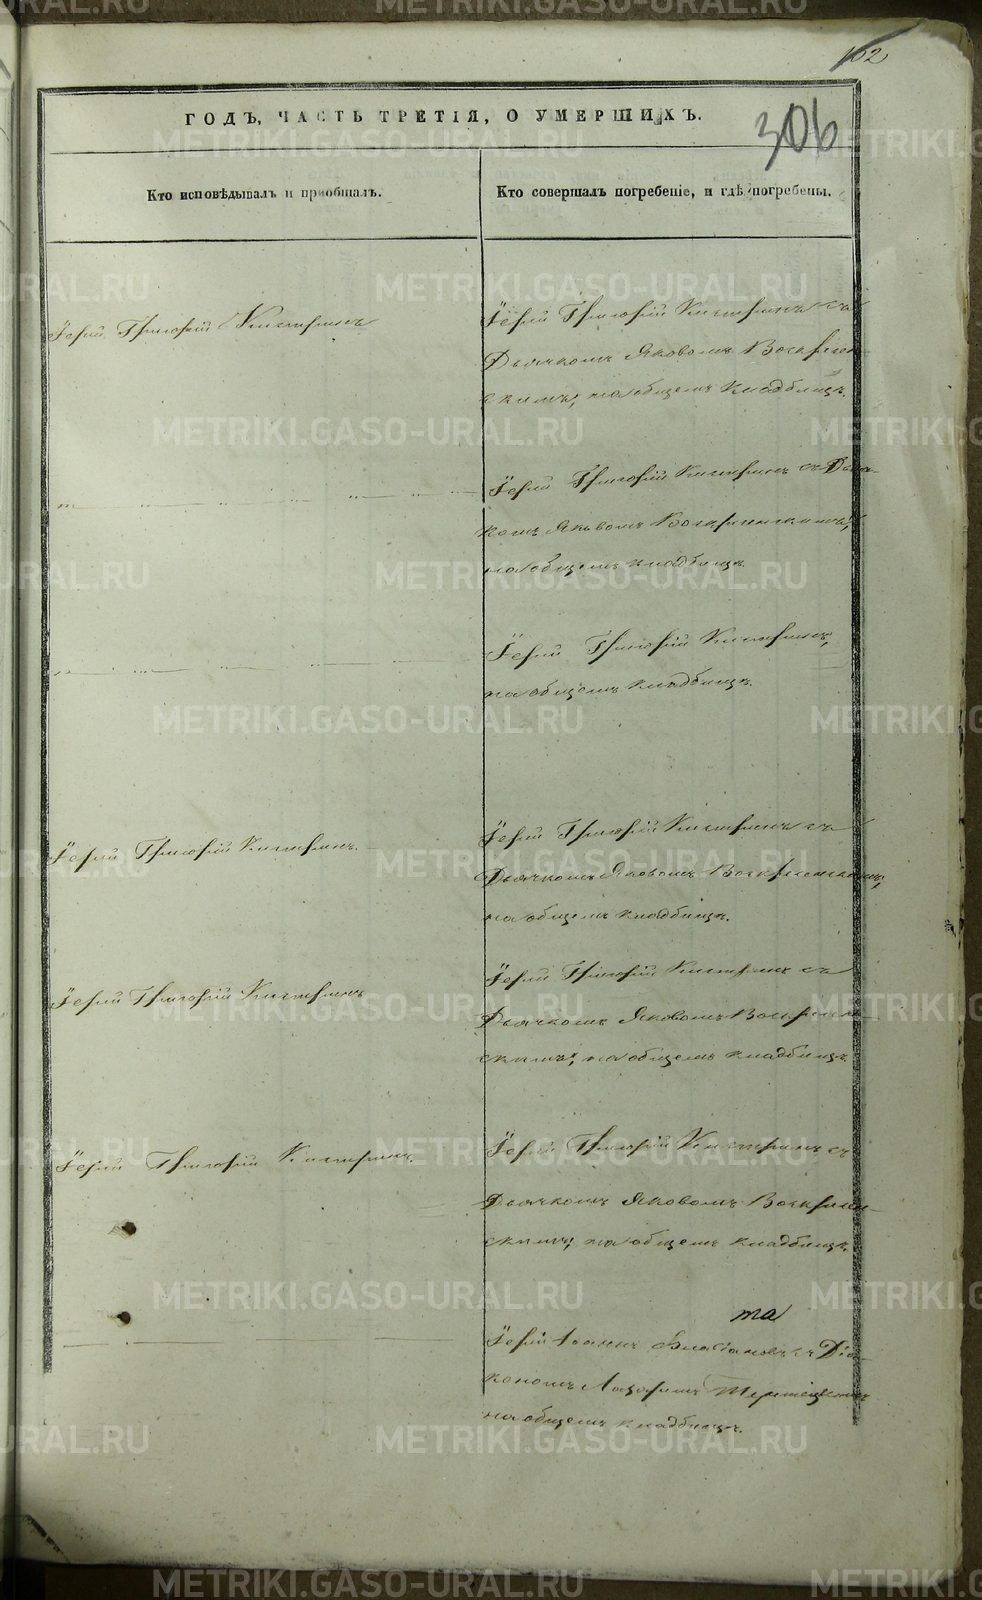 162
306
ГОДЪ, ЧАСТЬ ТРЕТІЯ, О УМЕРШИХЪ.
Кто исповѣдывалъ и пріобщалъ.
Кто совершалъ погребеніе, и гдѣ погребены.
Іерей Григорій Кистринъ
Іерей Григорій Кистринъ съ
Дьячкомъ Яковомъ Воскресен-
скимъ, на общемъ кладбищѣ.
Іерей Григорій Кистринъ съ Дьяч-
комъ Яковомъ Воскресенскимъ,
на общемъ кладбищѣ.
Іерей Григорій Кистринъ,
на общемъ кладбищѣ.
Іерей Григорій Кистринъ.
Іерей Григорій Кистринъ съ
Дьячкомъ Яковомъ Воскресенскимъ,
на общемъ кладбищѣ.
Іерей Григорій Кистринъ
Іерей Григорій Кистринъ съ
Дьячкомъ Яковомъ Воскресен-
скимъ, на общемъ кладбищѣ.
Іерей Григорій Кистринъ.
Іерей Григорій Кистринъ съ
Дьячкомъ Яковомъ Воскресен-
скимъ, на общемъ кладбищѣ.
та
Іерей Іоаннъ съ Діа-
кономъ
на общемъ кладбищѣ.
METRIKI.GASO-URAL.RU